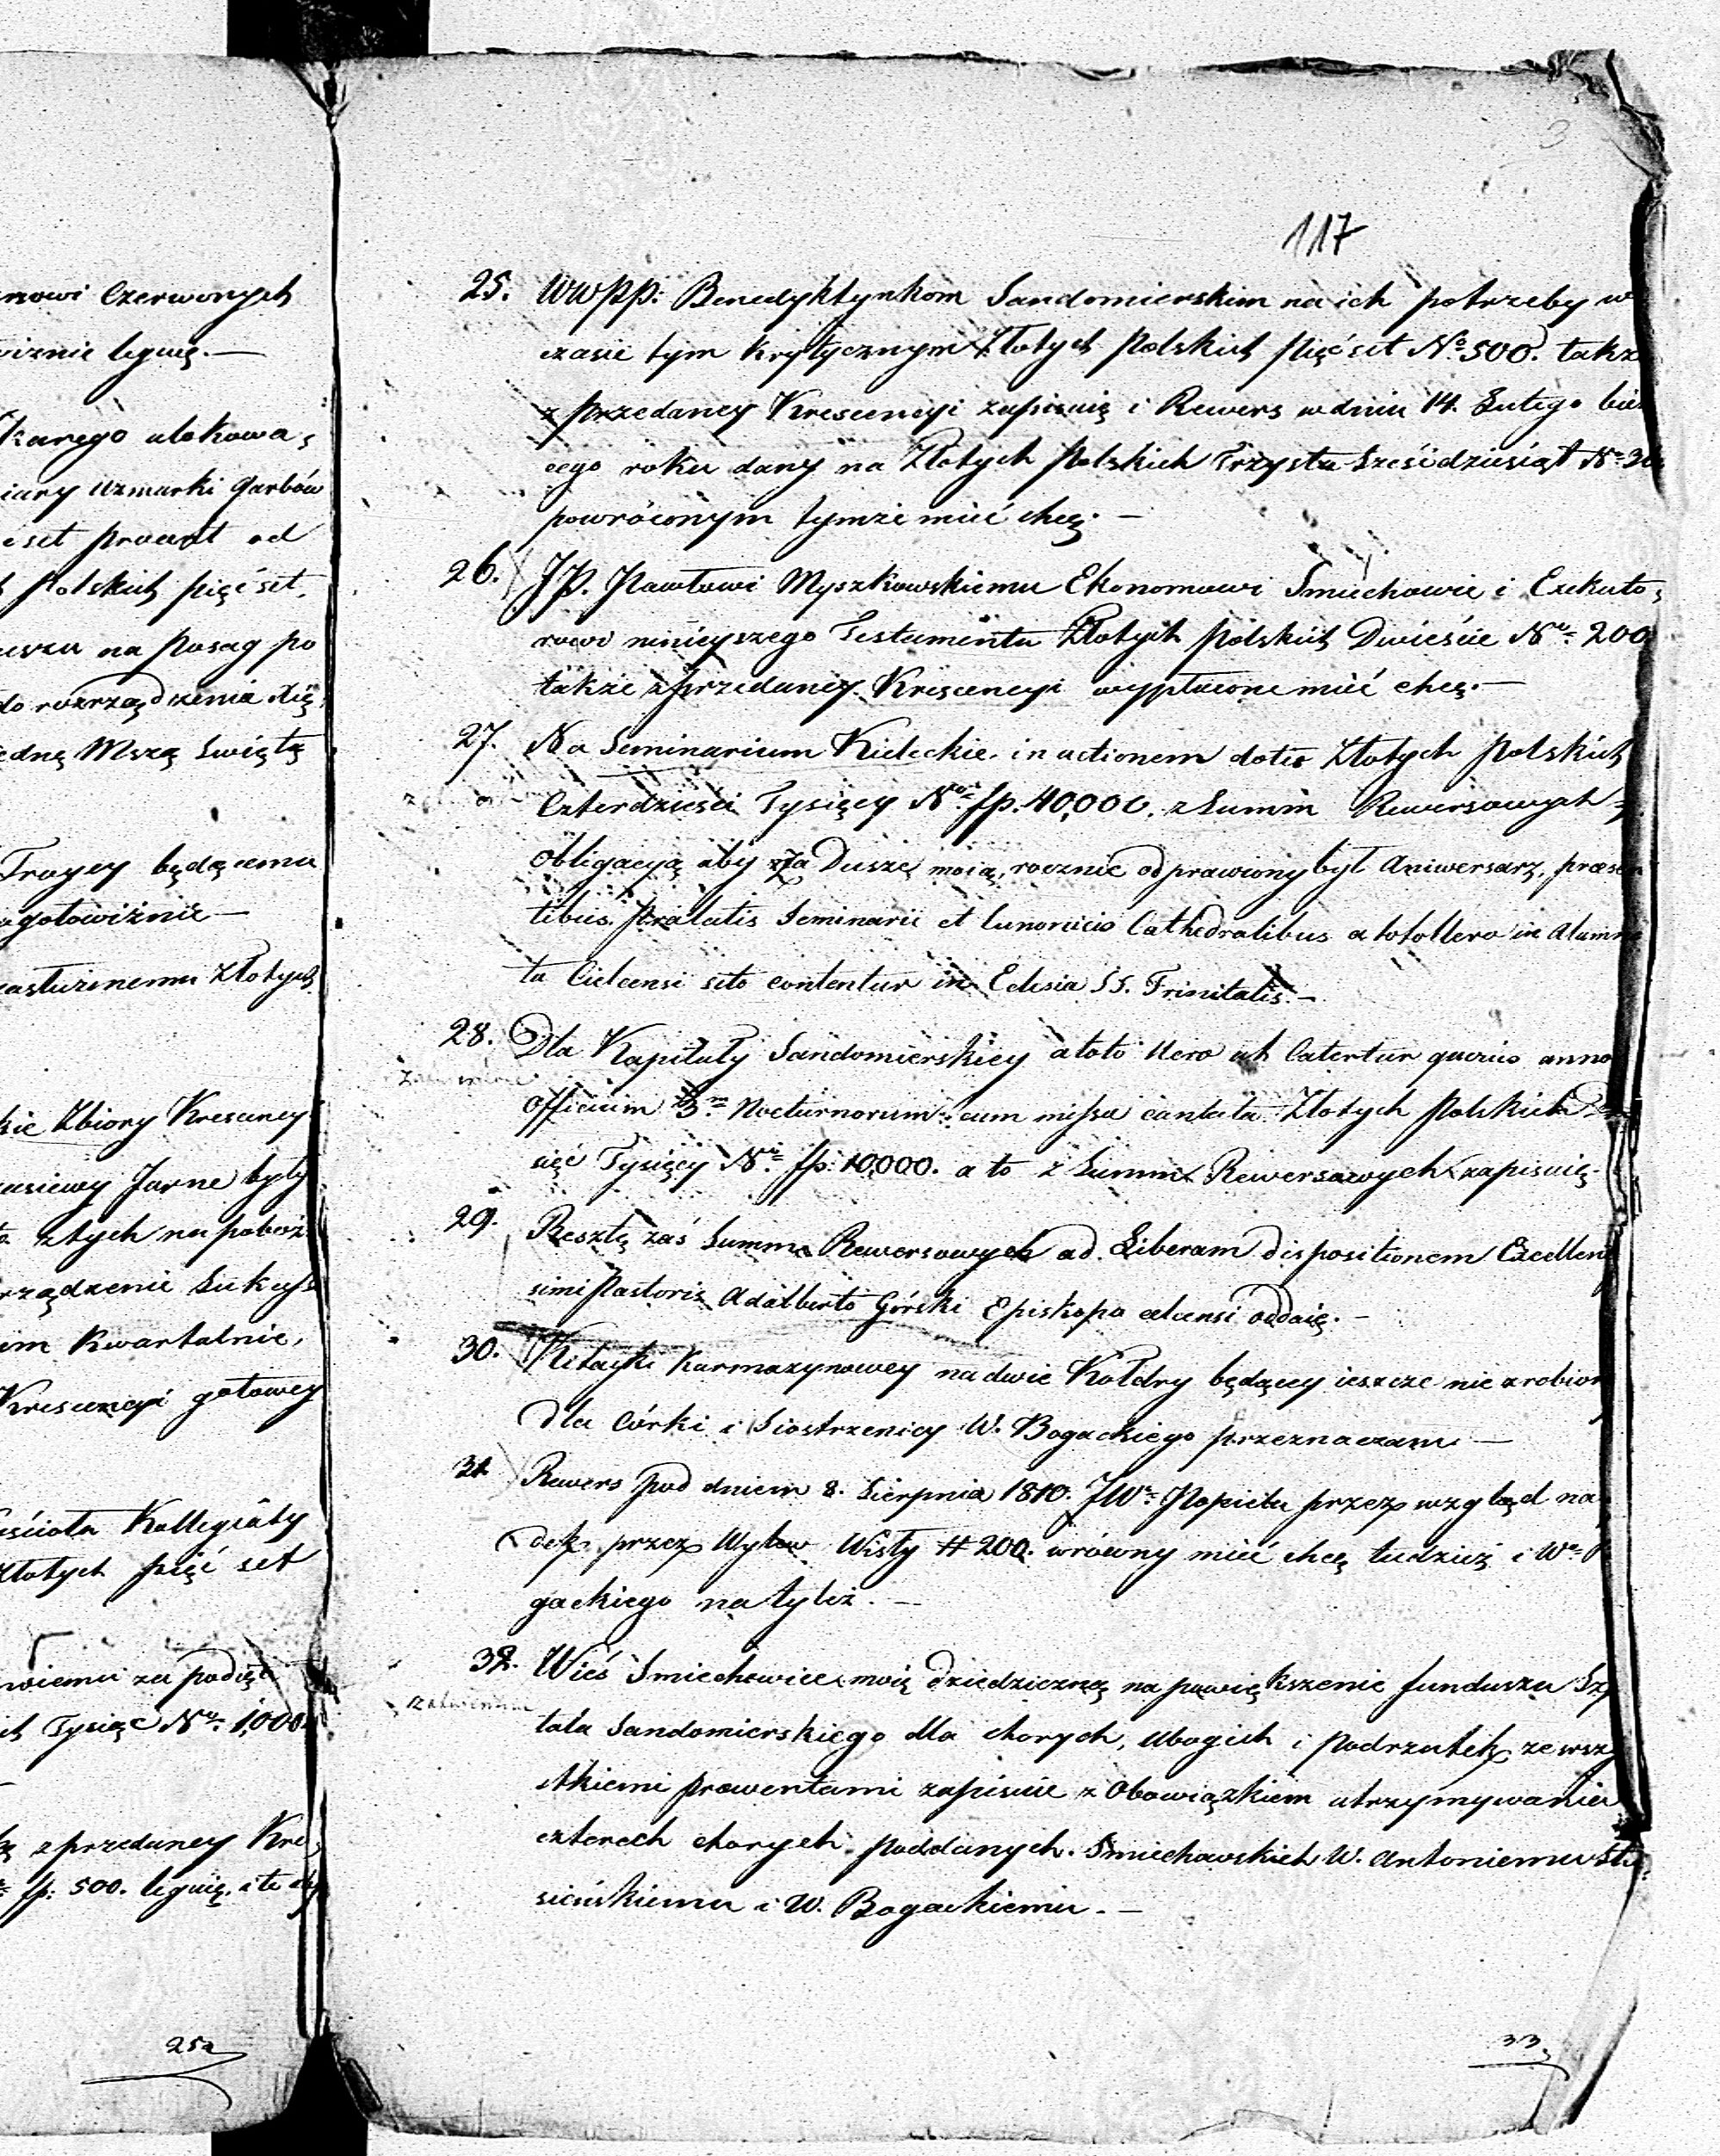 117
mowi Czerwonych
wiznie leguię.—
karego ulokowa,
iary Uzmarki Garbów
set prowent od
Polskich pięćset,
na Posag po
do rozrządzenia Xię,
iedną Mszą Swiętą
Troycy będącemu
gotowiźnie —
Złotych
kie Zbiory Krescency
Jarne były
złych na poboż
rządzenie Sukcess
im kwartalnie,
Krescencyi gotowey
ościoła Kollegiaty
Złotych pięć set
wiemu za podięt
ch Tysiąc Nro 1,000
z przedaney Kre,
fp: 500. leguię. i te
25. WWPP: Benedyktynkom Sandomierskim na ich potrzeby w
czasie tym krytycznym Złotych Polskich Pięćset No 500. takż
z przedaney Krescencyi zapisuię i Rewers w dniu 14. Lutego bie
cego roku dany na Złotych Polskich Trzysta Sześćdziesiąt No 36
powróconym tymże mieć chcę. —
26. JP. Pawłowi Myszkowskiemu Ekonomowi Smiechowic i Exekuto,
rowi ninieyszego Testamentu Złotych Polskich Dwieście Nro 200
także z przedaney Krescencyi wypłacone mieć chcę. —
27. Na Seminarium Kieleckie in actionem dotis Złotych Polskich
Czterdzieści Tysięcy Nro fp. 40,000. z Summ Rewersowych z
Obligacyą aby za Duszę moią, rocznie odprawiony był Aniwersarz, præsen
tibus Prælatis Seminarii et Canonicis Cathedralibus a toto Clero in Alumna
ta Cielcensi sito contentur in Eclesia SS. Trinitatis. —
28. Dla Kapituły Sandomierskiey a toto Clero ut Catertur quovis anno
officium 3m Nocturnorum cum missa cantata Złotych Polskich
sięć Tysięcy Nro fp: 10,000. a to z Summ Rewersowych zapisuię.
29. Resztę zaś Summ Rewersowych ad Liberam dispositionem Excellent
simi Pastoris Adalberto Górski Episkopo celcensi oddaię. —
30. Kitayki Karmazynowey na dwie Kołdry będącey ieszcze nie zrobion
dla Córki i Siostrzenicy W. Bogackiego przeznaczam —
31. Rewers pod dniem 8. Sierpnia 1810. JWo Popiela przez wzgląd na
dek przez Wylew Wisły # 200. wrócony mieć chcę tudzież i Wo
gackiego na tyleż. —
32. Wieś Smiechowice moią dziedziczną na powiększenie funduszu Szp
tala Sandomierskiego dla chorych, Ubogich i podrzutek ze wszy
stkiemi prowentami zapisuie z Obowiązkiem utrzymywania
czterech chorych poddanych Smiechowskich W. Antoniemu Sta,
sieńskiemu i W. Bogackiemu. —
33